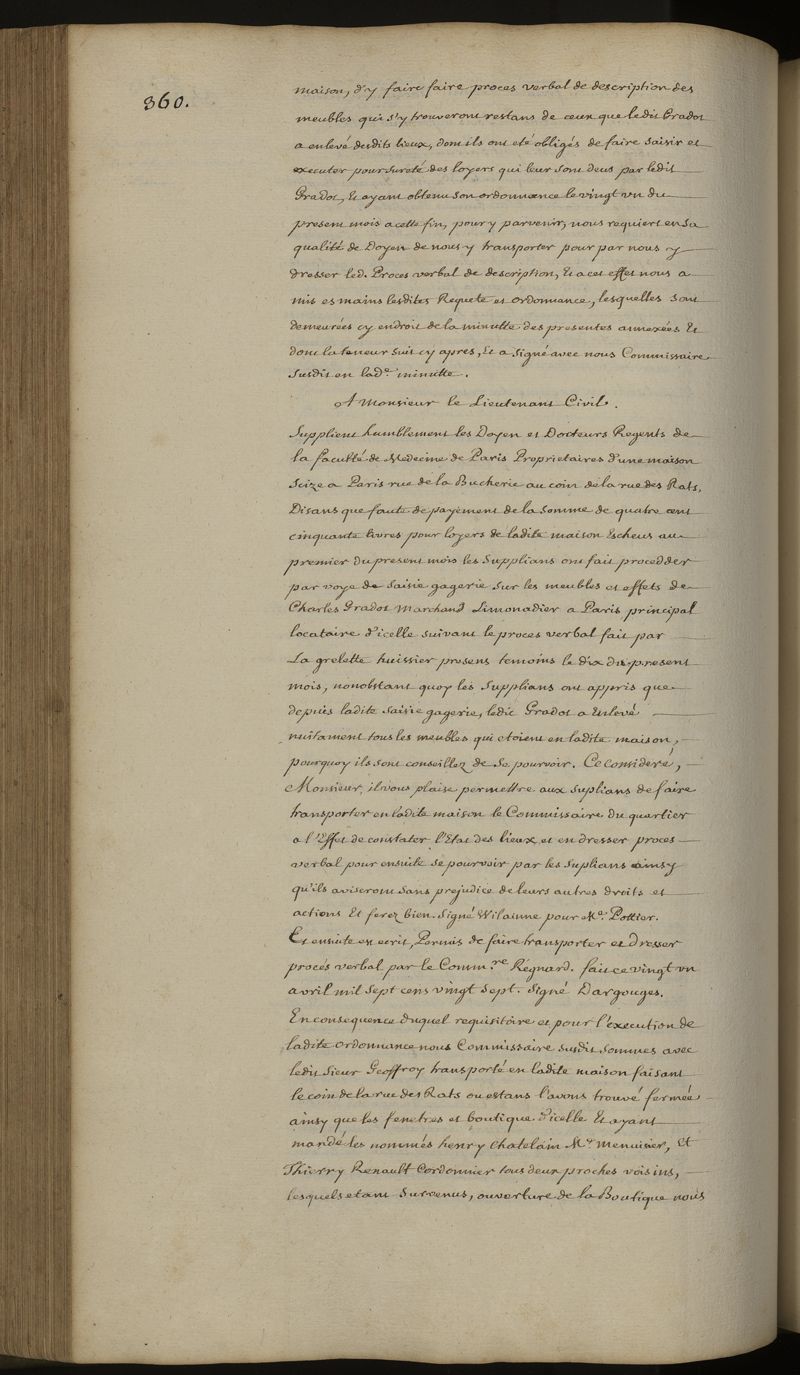 360.
maison, d'y faire faire proces verbal de description des
meubles qui s'y trouveront restans de ceux que ledit Gradot
a enlevé desdits lieux, dont ils ont eté obligés de faire saisir et
executer pour sureté des loyers qui leur sont deus par ledit
Gradot, Et ayant obtenu son ordonnance le vingt un du
present mois a cette fin, pour y parvenir, nous requiert en sa
qualité de Doyen de nous y transporter pour par nous y
dresser led. Proces verbal de description, Et a cet effet nous a
mis es mains lesdites Requete et ordonnance, lesquelles sont
demeurées cy endroit de la minutte des presentes annexées Et
dont la teneur suit cy apres, Et a signé avec nous Commissaire
susdit en lade. minutte.
A Monsieur le Lieutenant Civil.
Supplient humblement les Doyen et Docteurs Regents de
la faculté de Medecine de Paris Proprietaires d'une maison
scize a Paris rue de la Bucherie au coin de la rue des Rats,
Disans que faute de payement de la somme de quatre cent
cinquante livres pour loyers de ladite maison Escheus au
premier du present mois les supplians ont fait procedder
par voye de saisie gagerie sur les meubles et effets de
Charles Gradot Marchand Limonadier a Paris principal
locataire d'icelle suivant le proces verbal fait par
La grelette huissier presens temoins le dix du present
mois, nonobstant quoy les supplians ont appris que
depuis ladite saisie gagerie, ledit Gradot a Enlevé
nuitament tous les meubles qui etoient en ladite maison,
pourquoy ils sont conseillez de se pourvoir. Ce consideré,
Monsieur, il vous plaise permettre aux suplians de faire
transporter en ladite maison le Commissaire du quartier
a l'Effet de constater l'Etat des lieux et en dresser proces
verbal pour ensuite se pourvoir par les suplians ainsy
qu'ils aviseront sans prejudice de leurs autres droits et
actions Et ferez bien. Signé Wilainne pour Me. Pottier.
Et ensuite est ecrit, Permis de faire transporter et Dresser
procés verbal par le Comm.re Régnard. fait ce vingt un
avril mil sept cens vingt sept. Signé Dargouges.
En consequence duquel requisitoire et pour l'execution de
ladite ordonnance nous Commissaire susdit sommes avec
ledit Sieur Geoffroy transporté en ladite maison faisant
le coin de la rue des Rats ou estans l'avons trouvé fermée
ainsy que les fenetres et boutique d'icelle Et ayant
mandé les nommés henry Chatelain Me. Menuisier, Et
Thierry Renault Cordonnier tous deux proches voisins,
lesquels etant survenus, ouverture de la Boutique nous